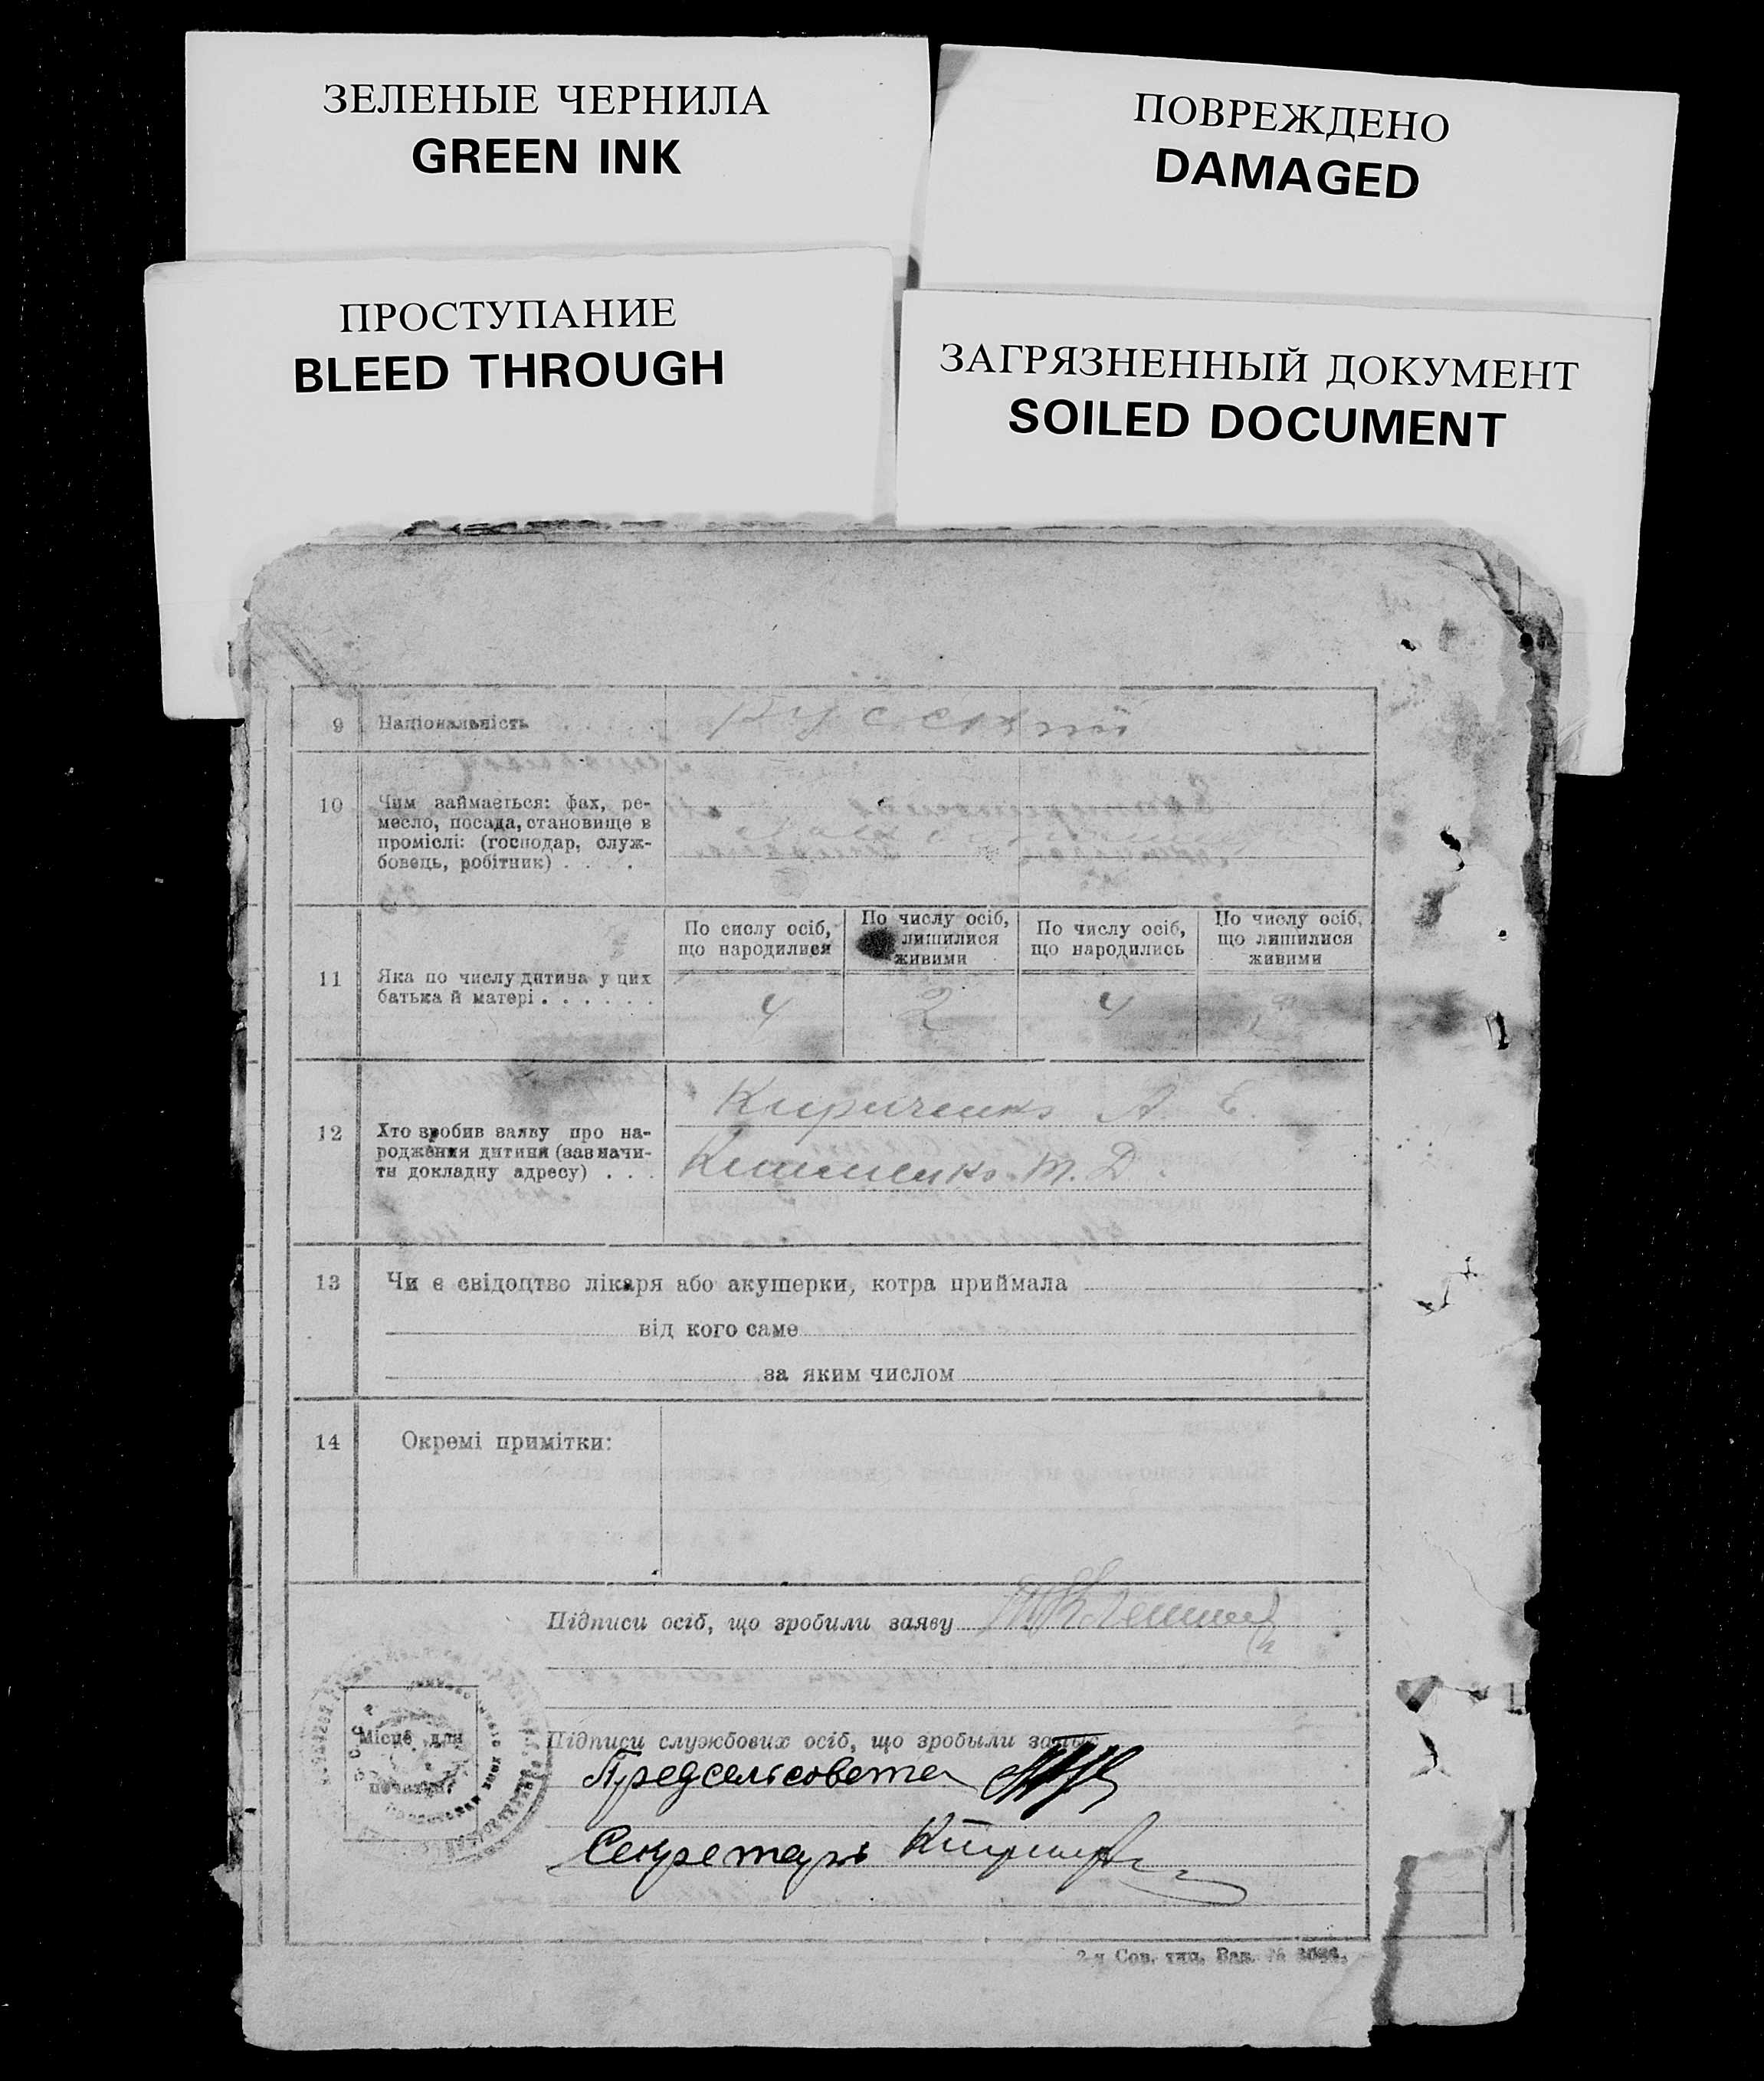 ЗЕЛЕНЫЕ ЧЕРНИЛА
GREEN INK
ПОВРЕЖДЕНО
DAMAGED
ПРОСТУПАНИЕ
BLEED THROUGH
ЗАГРЯЗНЕННЫЙ ДОКУМЕНТ
SOILED DOCUMENT
9 Національність . . . . . русский
10 Чим займається: фах, ре-
месло, посада, становище в
проміслі: (господар, служ-
бовець, робітник) . . . .
По сислу осіб,
що народилися
По числу осіб,
лишилися
живими
По числу осіб,
що народились
По числу осіб,
що лишилися
живими
11 Яка по числу дитина у цих
батька й матері . . . . . .
4 2 4
Кириченко А. Е.
12 Хто зробив заяву про на-
родження дитини (зазначи-
ти докладну адресу) . . .
Т. Д.
13 Чи є свідоцтво лікаря або акушерки, котра приймала
від кого саме
за яким числом
14 Окремі примітки:
Підписи осіб, що зробили заяву
Місце для
печатки
Підписи службових осіб, що зробыли запис
Председсовета
Секретарь
2-я Сов. тип. Зак. №